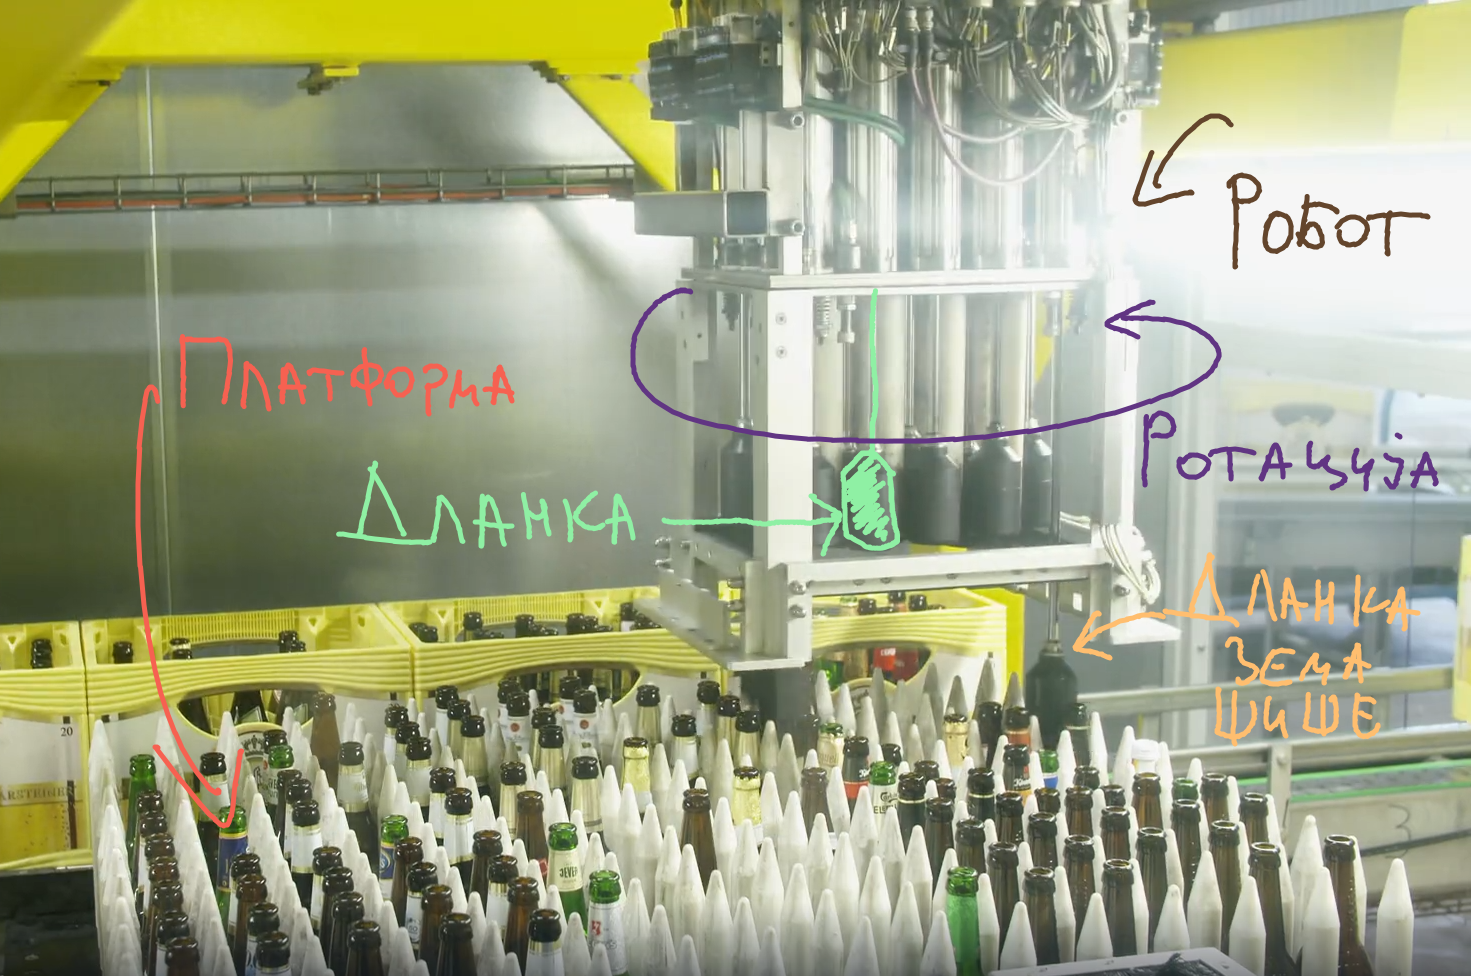 Робот
Платформа
Ротација
Дланка
Дланка
зема
шише
20
JEVER